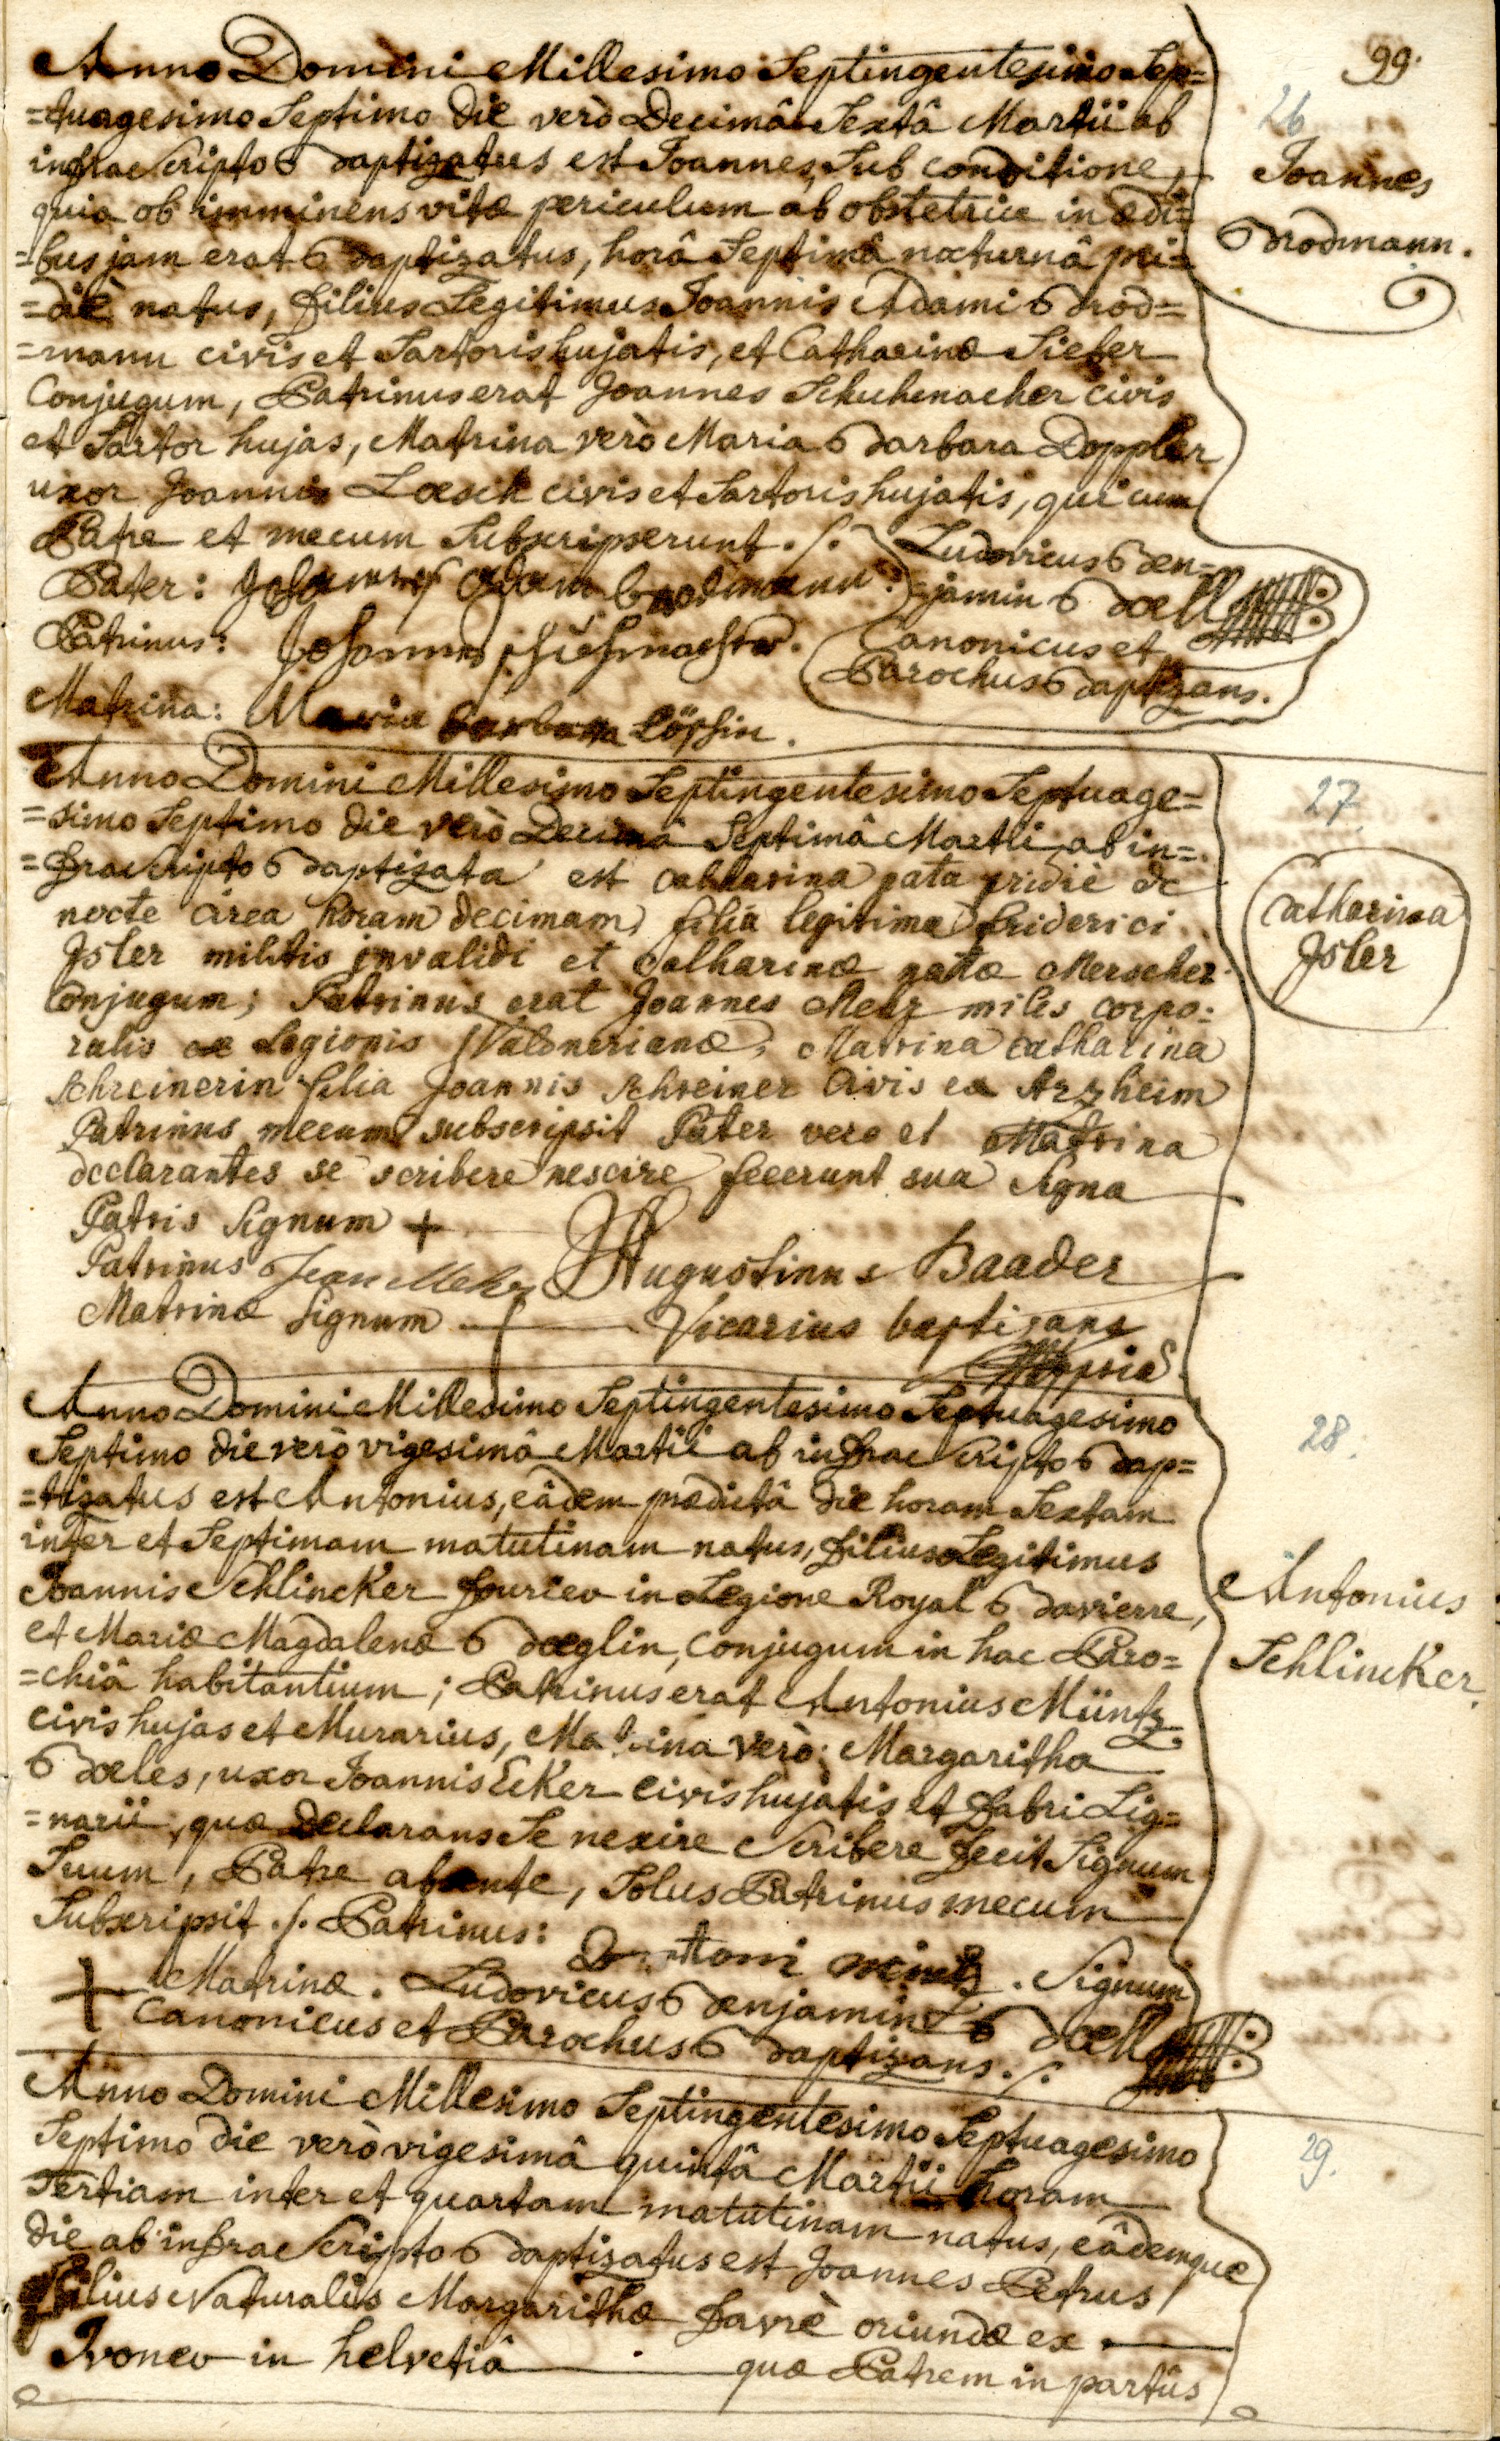 99.
Anno Domini Millesimo Septingentesimo Sep=
=tuagesimo Septimo die verò Decimâ Sextâ Martii ab
infrascripto Baptizatus est Joannes, Sub conditione,
quia ob imminens vitæ periculum ab obstetrice in ædi=
=bus jam erat Baptizatus, horâ Septimâ nocturnâ pri=
=diè natus, Filius Legitimus Joannis Adami Brod=
=mann civis et Sartoris hujatis, et Catharinæ Sieber
Conjugum, Patrinus erat Joannes Schuhmacher civis
et Sartor hujas, Matrina verò Maria Barbara Doppler
uxor Joannis Loesch civis et Sartoris hujatis, qui cum
Patre et mecum Subscripserunt ./.
26
Joannes
Brodmann.
Pater: Johannes Adam brodmann.
Patrinus: Johannes schuhmacher.
Matrina: Maria barbara Lößin.
Ludovicus Ben=
jamin Boell
Canonicus et
Parochus Baptizans.
Anno Domini Millesimo Septingentesimo Septuage=
=simo Septimo die verò Decimâ Septimâ Martii ab in=
=frascripto Baptizata est catharina nata pridie de
nocte circa horam decimam, filia legitima friderici
Isler militis invalidi et Catharinæ natæ Merscher
Conjugum; Patrinus erat Joannes Metz miles corpo:
ralis ex Legionis Waldnerianæ, Matrina catharina
schreinerin filia Joannis schreiner civis ex Arzheim
Patrinus mecum subscripsit Pater vero et Matrina
declarantes se scribere nescire fecerunt sua signa
27.
Catharina
Isler
Patris signum +
Patrinus Jean Mehz
Matrinæ signum +
Augustinus Baader
Vicarius baptizans
Anno Domini Millesimo Septingentesimo Septuagesimo
Septimo die verò vigesimâ Martii ab infrascripto Bap=
=tizatus est Antonius, eâdem prædictâ die horam Sextam
inter et Septimam matutinam natus, Filius Legitimus
Joannis Schlincker Furier in Legione Royal Bavierre,
et Mariæ Magdalenæ Bæglin, Conjugum in hac Paro=
=chiâ habitantium; Patrinus erat Antonius Müntz
civis hujas et Murarius, Matrina verò: Margaritha
Boeles, uxor Joannis Ecker civis hujatis et Fabri Lig=
=narii, quæ declarans Se nescire Scribere fecit Signum
Suum, Patre absente, Solus Patrinus mecum
Subscripsit ./. Patrinus: Anttoni mintz. Signum
+ Matrinæ. Ludovicus Benjamin Boell
Canonicus et Parochus Baptizans ./.
28.
Antonius
Schlincker.
Anno Domini Millesimo Septingentesimo Septuagesimo
Septimo die verò vigesimâ quintâ Martii horam
Tertiam inter et quartam matutinam natus, eâdemque
die ab infrascripto Baptizatus est Joannes Petrus
Filius Naturalis Margarithæ Favrè oriundæ ex
Ivonev in helvetiâ quæ Patrem in partûs
29.